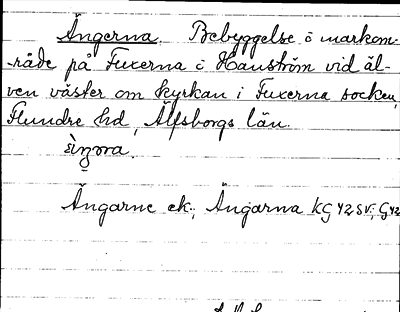 Ängerna. Bebyggelse å markom-
råde på Fuxerna å Hanström vid äl-
ven väster om kyrkan i Fuxerna socken,
Flundre hd, Älfsborgs län.
Ängarne ek; Ängarna KG 42 SV; G 42